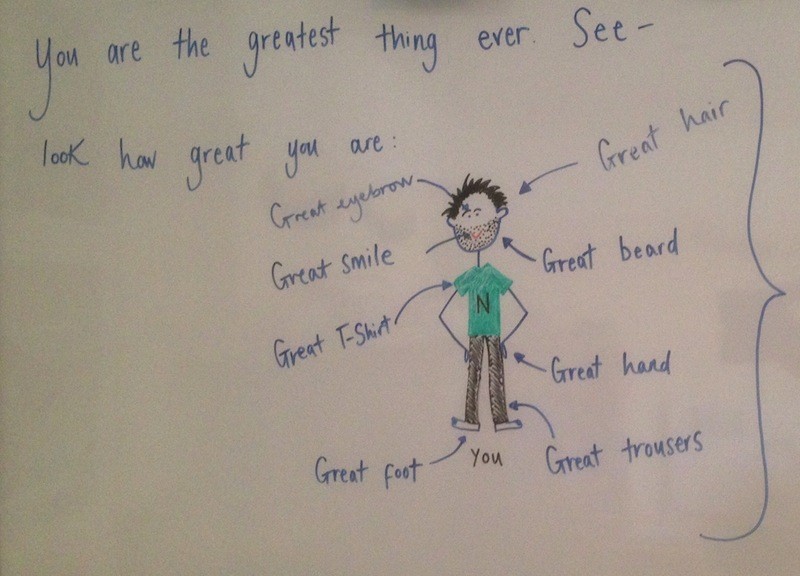 You are the greatest thing ever. See -
look how great you are:
Great hair
Great eyebrow
Great beard
Great smile
N
Great T-Shirt
Great hand
Great trousers
Great foot
You